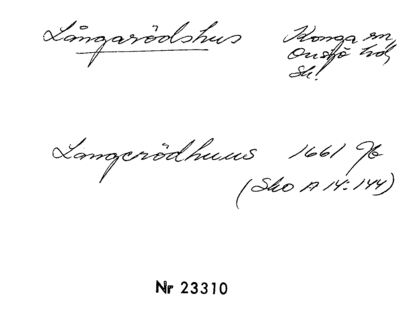 Långarödshus Konga sn,
Onsjö hd,
Sk.
Langerödhuus 1661 Jb
(Sko A 14:144)
Nr 23310